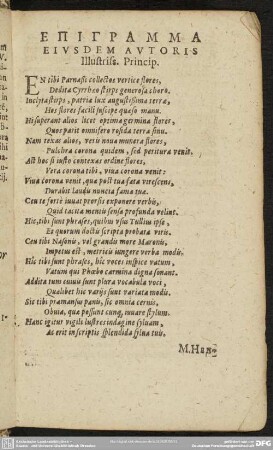 ΕΠΙΓΡΑΜΜΑ
EIVSDEM AVTORIS
Illustriss. Princip.
EN tibi Parnassi collectos vertice flores,
Dedita Cyrrhæo stirps generosa choro.
Inclyta stirps, patriæ lux augustissima terræ,
Hos flores facili suscipe quæso manu.
Hi superant alios licet optima germina flores,
Quos parit omnifero roscida terra sinu.
Nam texas alios, veris noua munera flores,
Pulchra corona quidem, sed peritura venit.
Ast hos si iusto contexas ordine flores,
Vera corona tibi, viua corona venit:
Viua corona venit, quæ post tua fata virescens,
Durabit laudu nuncia fama tuæ.
Ceu te forte iuuat prorsis exponere verbis,
Quid tacita mentis sensa profunda velint.
Hic, tibi sunt phrases, quibus vsus Tullius ipse
Et quorum doctis scripta probata viris.
Ceu tibi Nasonis, vel grandu more Maronis,
Impetus est, metricis iungere verba modis.
Hic tibi sunt phrases, hic voces inspice vatum,
Vatum qui Phœbo carmina digna sonant.
Addita tum cuiuis sunt plura vocabula voci,
Qualibet hic varijs sunt variata modis.
Sic tibi pramansu panis, sic omnia cernis,
Obuia, quæ possunt cunq, iuuare stylum.
Hanc igitur vigili lustres indagine syluam,
Ac erit inscriptis splendida sylua tuis.